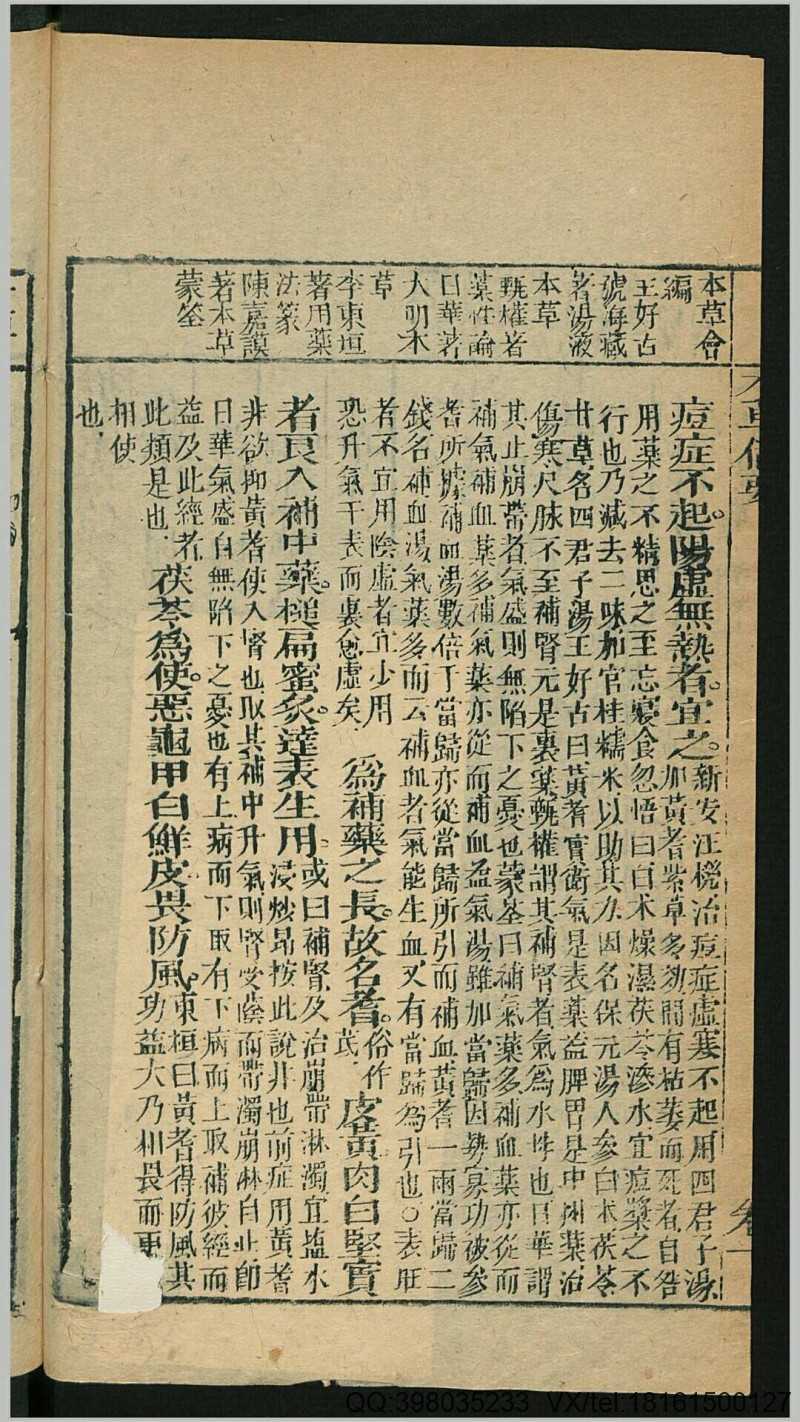 本草會
編
王好古
號海藏
著湯液
本草
甄權著
藥性論
日華著
大明本
草
李東垣
著用藥
法象
陳嘉謨
著本草
蒙筌
痘症不起陽虛無熱者宜之新安汪機治痘症虛寒不起用四君子湯
加黃耆紫草多效間有枯萎而死者自咎
用藥之不精思之至忘寢食忽悟曰白朮燥濕茯苓滲水宜痘漿之不
行也乃減去二味加官桂糯米以助其力因名保元湯人參白朮茯苓
甘草名四君子湯王好古曰黃耆實衛氣是表藥益脾胃是中州藥治
傷寒尺脉不至補腎元是裏藥甄權謂其補腎者氣為水母也日華謂
其止崩帶者氣盛則無陷下之憂也蒙筌曰補氣藥多補血藥亦從而
補氣補血藥多補氣藥亦從而補血益氣湯雖加當歸因勢寡功被參
耆所據補血湯數倍于當歸亦從當歸所引而補血黃耆一兩當歸二
錢名補血湯氣藥多而云補血者氣能生血又有當歸為引也○表旺
者不宜用陰虛者宜少用
恐升氣于表而裏愈虛矣 為補藥之長故名耆俗作
芪 皮黃肉白堅實
者良入補中藥槌扁蜜炙達表生用或曰補腎及治崩帶淋濁宜塩水
浸炒昂按此說非也前症用黃耆
非欲抑黃耆使入腎也取其補中升氣則腎受蔭而帶濁崩淋自止即
日華氣盛自無陷下之憂也有上病而下取有下病而上取補彼經而
益及此經者
此類是也 茯苓為使惡龜甲白鮮皮畏防風東垣曰黃耆得防風其
功益大乃相畏而更
相使
也
卷一
QQ:398035233 VX/tel:18161500127